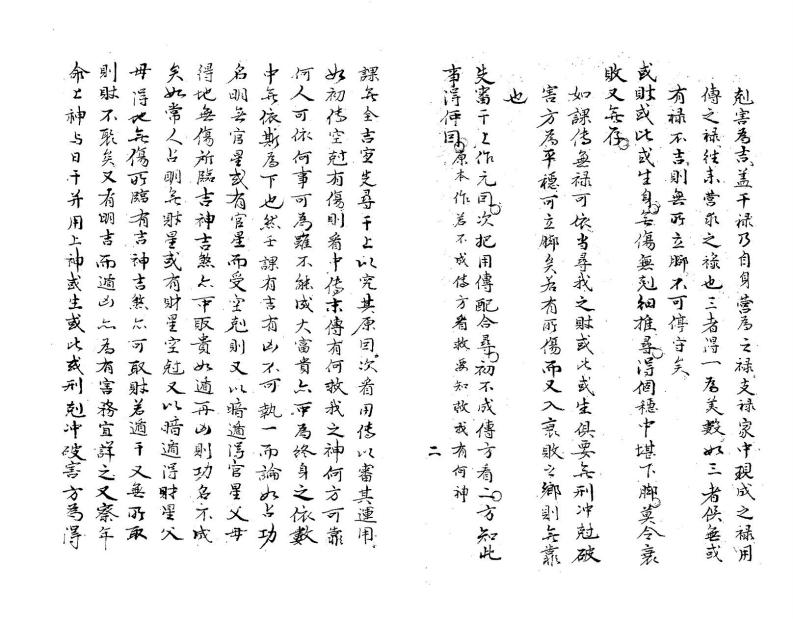 尅害為吉盖干禄乃自身營為之禄支禄家中現成之禄用
傳之禄往来營求之禄也三者得一為美數如三者俱無或
有禄不吉則無所立脚不可停守矣
或財或比或生身無傷無尅細推尋得個穩中堪下脚莫令衰
敗又無存
如課傳無禄可依当尋我之財或比或生俱要無刑冲尅破
害方為平穩可立脚矣若有所傷而又入衰敗之鄉則無靠
也
先審干上作元因次把用傳配合尋初不成傳方看二方知此
事得何因原本作若不成傳方看救要知救或有何神
二
課無全吉宜先尋干上以究其原因次看用傳以審其連用
如初傳空尅有傷則看中傳末傳有何救我之神何方可靠
何人可依何事可為雖不能成大富貴亦可為終身之依數
中無依斯為下也然壬課有吉有凶不可執一而論如占功
名明無官星或有官星而受空尅則又以暗遁得官星父母
得地無傷所臨吉神吉煞亦可取貴如遁再凶則功名不成
矣如常人占明無財星或有財星空尅又以暗遁得財星父
母得地無傷所臨有吉神吉煞亦可取財若遁干又無所取
則財不聚矣又有明吉而遁凶亦為有害務宜詳之又察年
命上神与日干并用上神或生或比或刑尅冲破害方為得